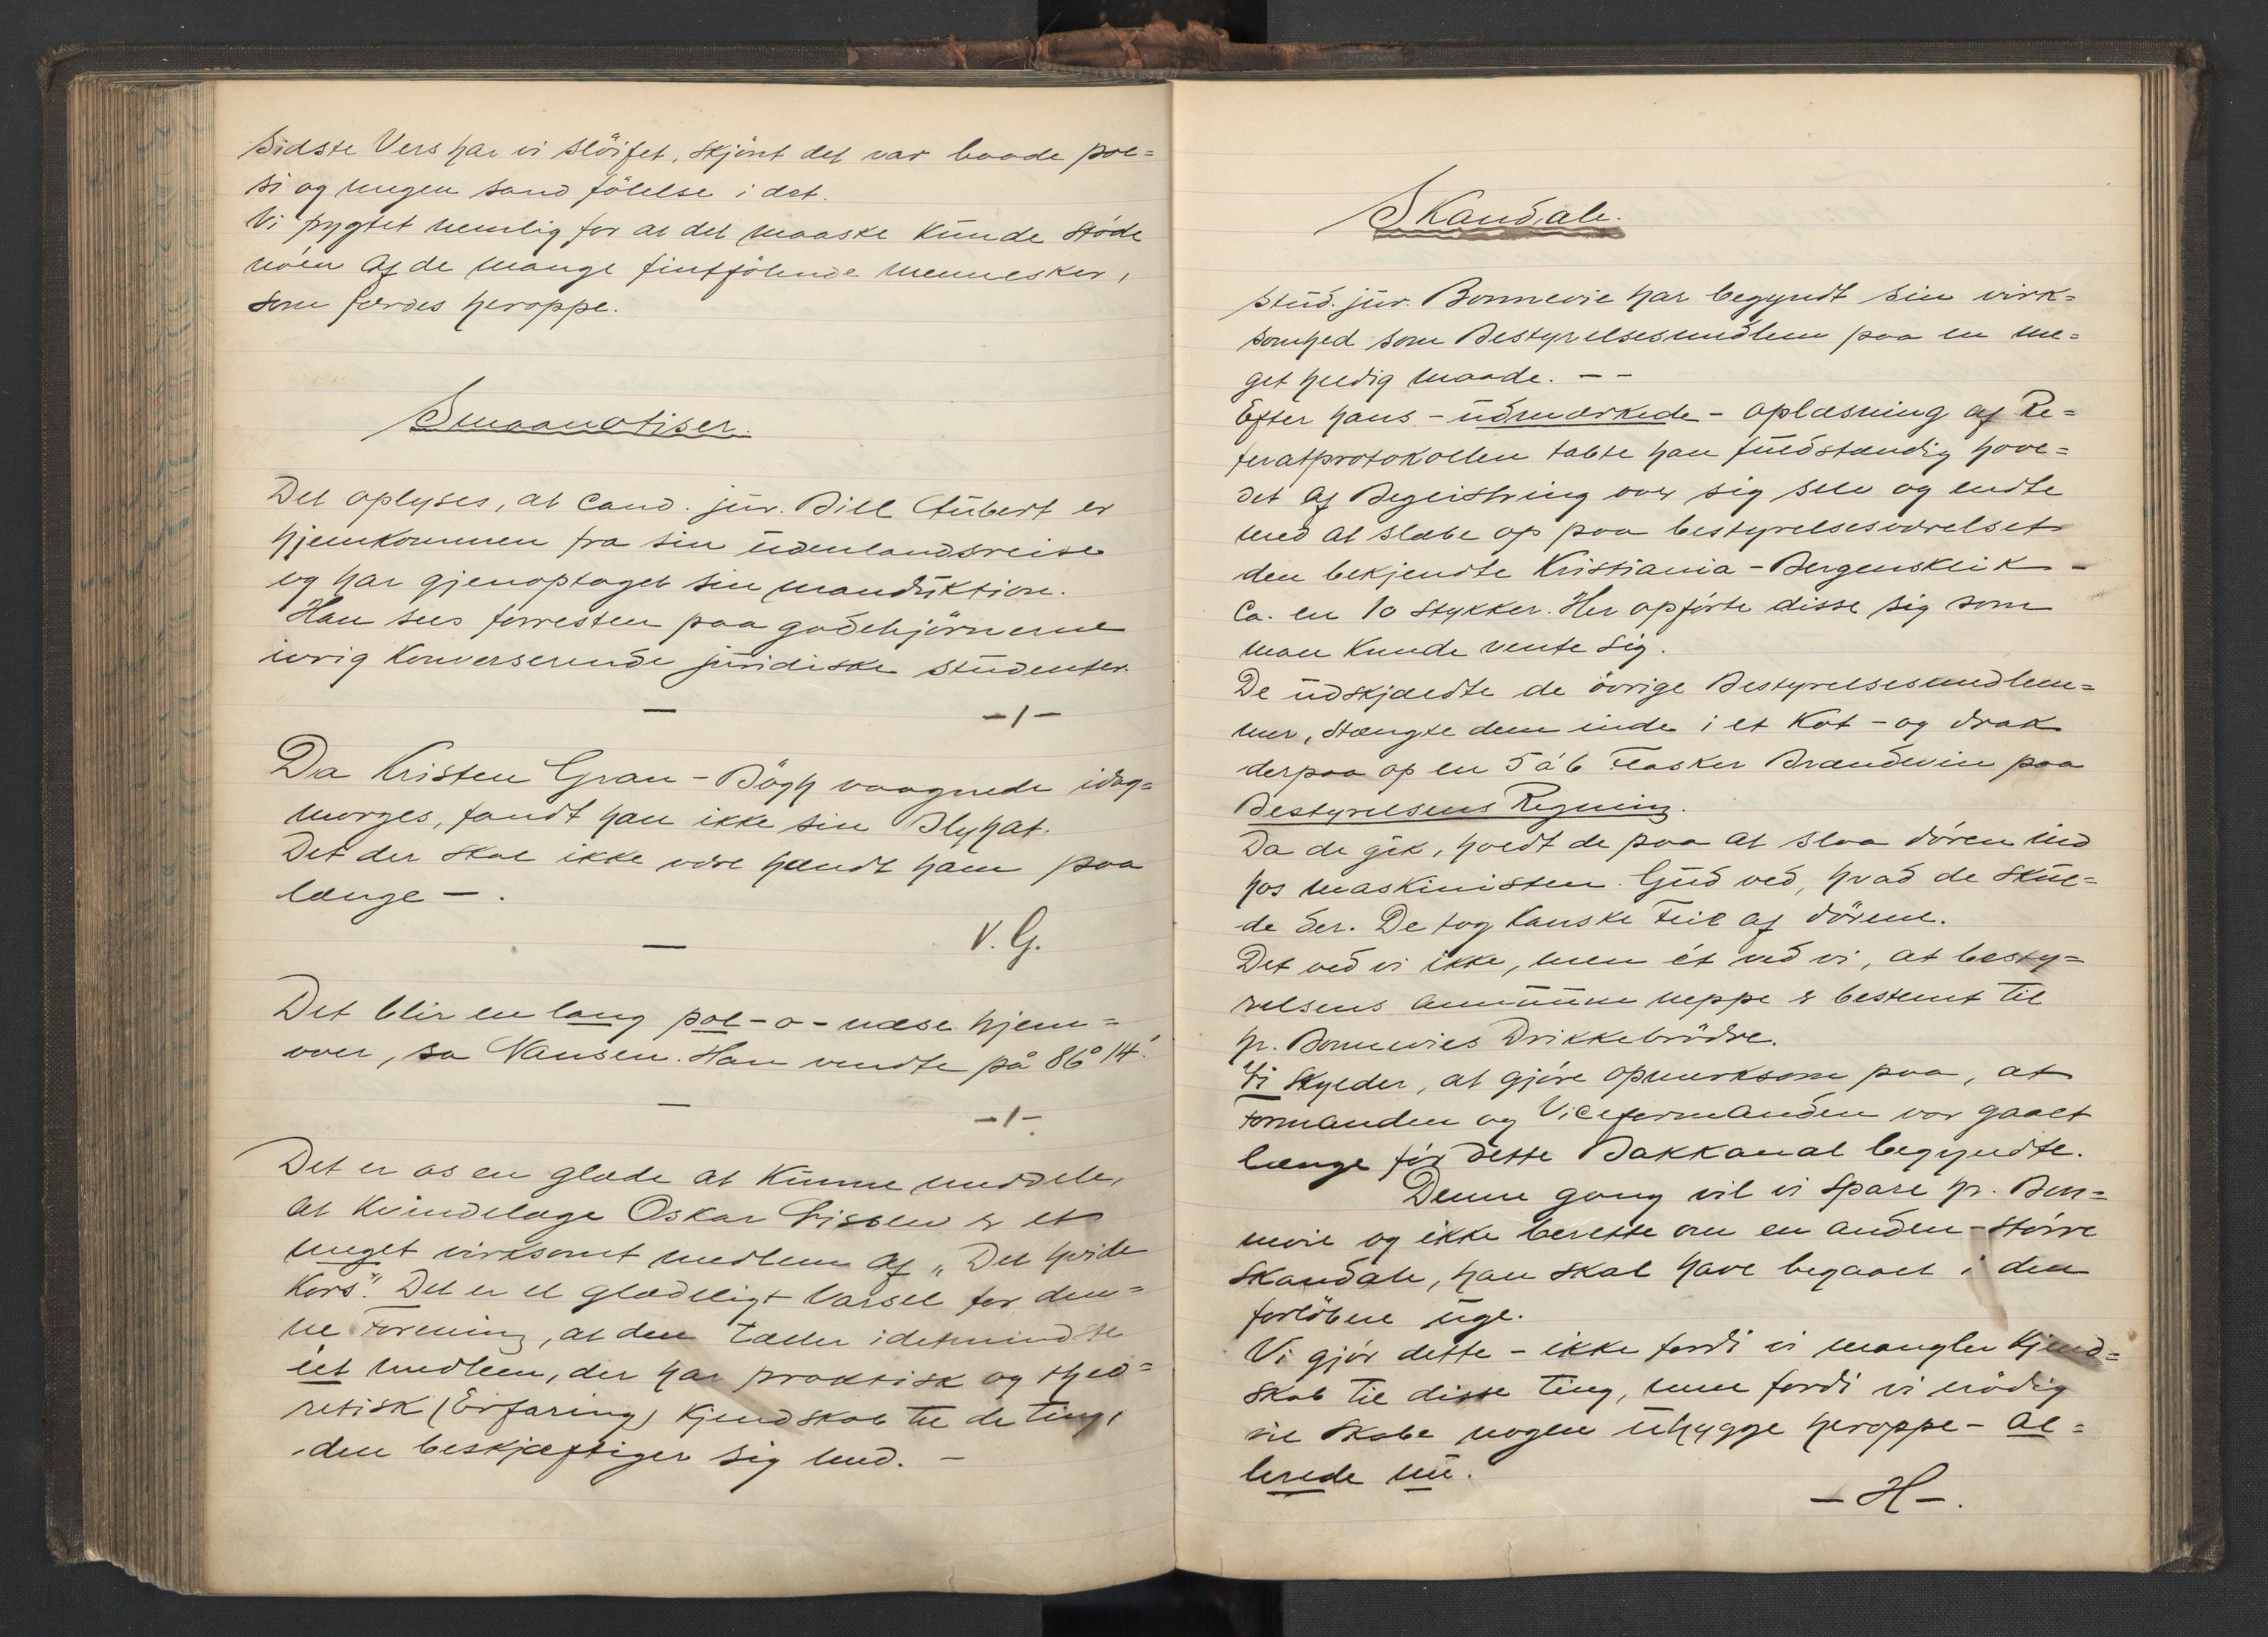 Sidste Vers har vi slöifet, skjönt det var baade poe=
si og megen sand fölelse i det.
Vi frygtet nemlig for at det maaske kunde støde
noen af de mange fintfölende mennesker,
som færdes heroppe.
Smaanotiser.
Det oplyses, at cand. jur. Bill Aubert er
hjemkommen fra sin udenlandsreise
og har gjenoptaget sin manduktion.
Han sees forresten paa gadehjörnerne
ivrig konverserende juridiske studenter.
— -/-
Da Kristen Gran-Bögh vaagnede idag=
morges, fandt han ikke sin Blyhat.
Det der skal ikke være hændt ham paa
længe —.
— V. G.
Det blir en lang pol-o-næse hjem=
over, sa Nansen. Han vendte på 86° 14'.
— -/-.
Det er os en glæde at kunne meddele,
at kvindelæge Oskar Nissen er et
meget virksomt medlem af „Det hvide
Kors". Det er et glædeligt varsel for den=
ne Forening, at den tæller idetmindste
ét medlem, der har praktisk og theo=
retisk (Erfaring) kjendskab til de ting,
den beskjæftiger sig med. —
Skandale.
Stud. jur. Bonnevie har begyndt sin virk=
somhed som Bestyrelsesmedlem paa en me=
get heldig maade. — —
Efter hans - udmærkede - oplæsning af Re=
feratprotokollen tabte han fuldstændig hove=
det af Begeistring over sig selv og endte
med at slæbe op paa bestyrelsesværelset
den bekjendte Kristiania-Bergensklik -
ca. en 10 stykker. Her opførte disse sig som
man kunde vente sig.
De udskjældte de övrige Bestyrelsesmedlem=
mer, stængte dem inde i et Kot - og drak
derpaa op en 5 à 6 Flasker Brændevin paa
Bestyrelsens Regning.
Da de gik, holdt de paa at slaa døren ind
hos maskinisten. Gud ved, hvad de skul=
de der. De tog kanske Feil af dörene.
Det ved vi ikke, men ét ved vi, at besty=
relsens neppe er bestemt til
hr. Bonnevies Drikkebrödre.
Vi skylder, at gjøre opmerksom paa, at
Formanden og Viceformanden var gaaet
længe før dette Bakkanal begyndte.
Denne gang vil vi spare hr. Bon=
nevie og ikke berette om en anden - större
Skandale, han skal have begaaet i den
forlöbne uge.
Vi gjör dette - ikke fordi vi mangler kjend=
skab til disse ting, men fordi vi nödig
vil skabe nogen uhygge heroppe - al=
lerede nu.
— H —.